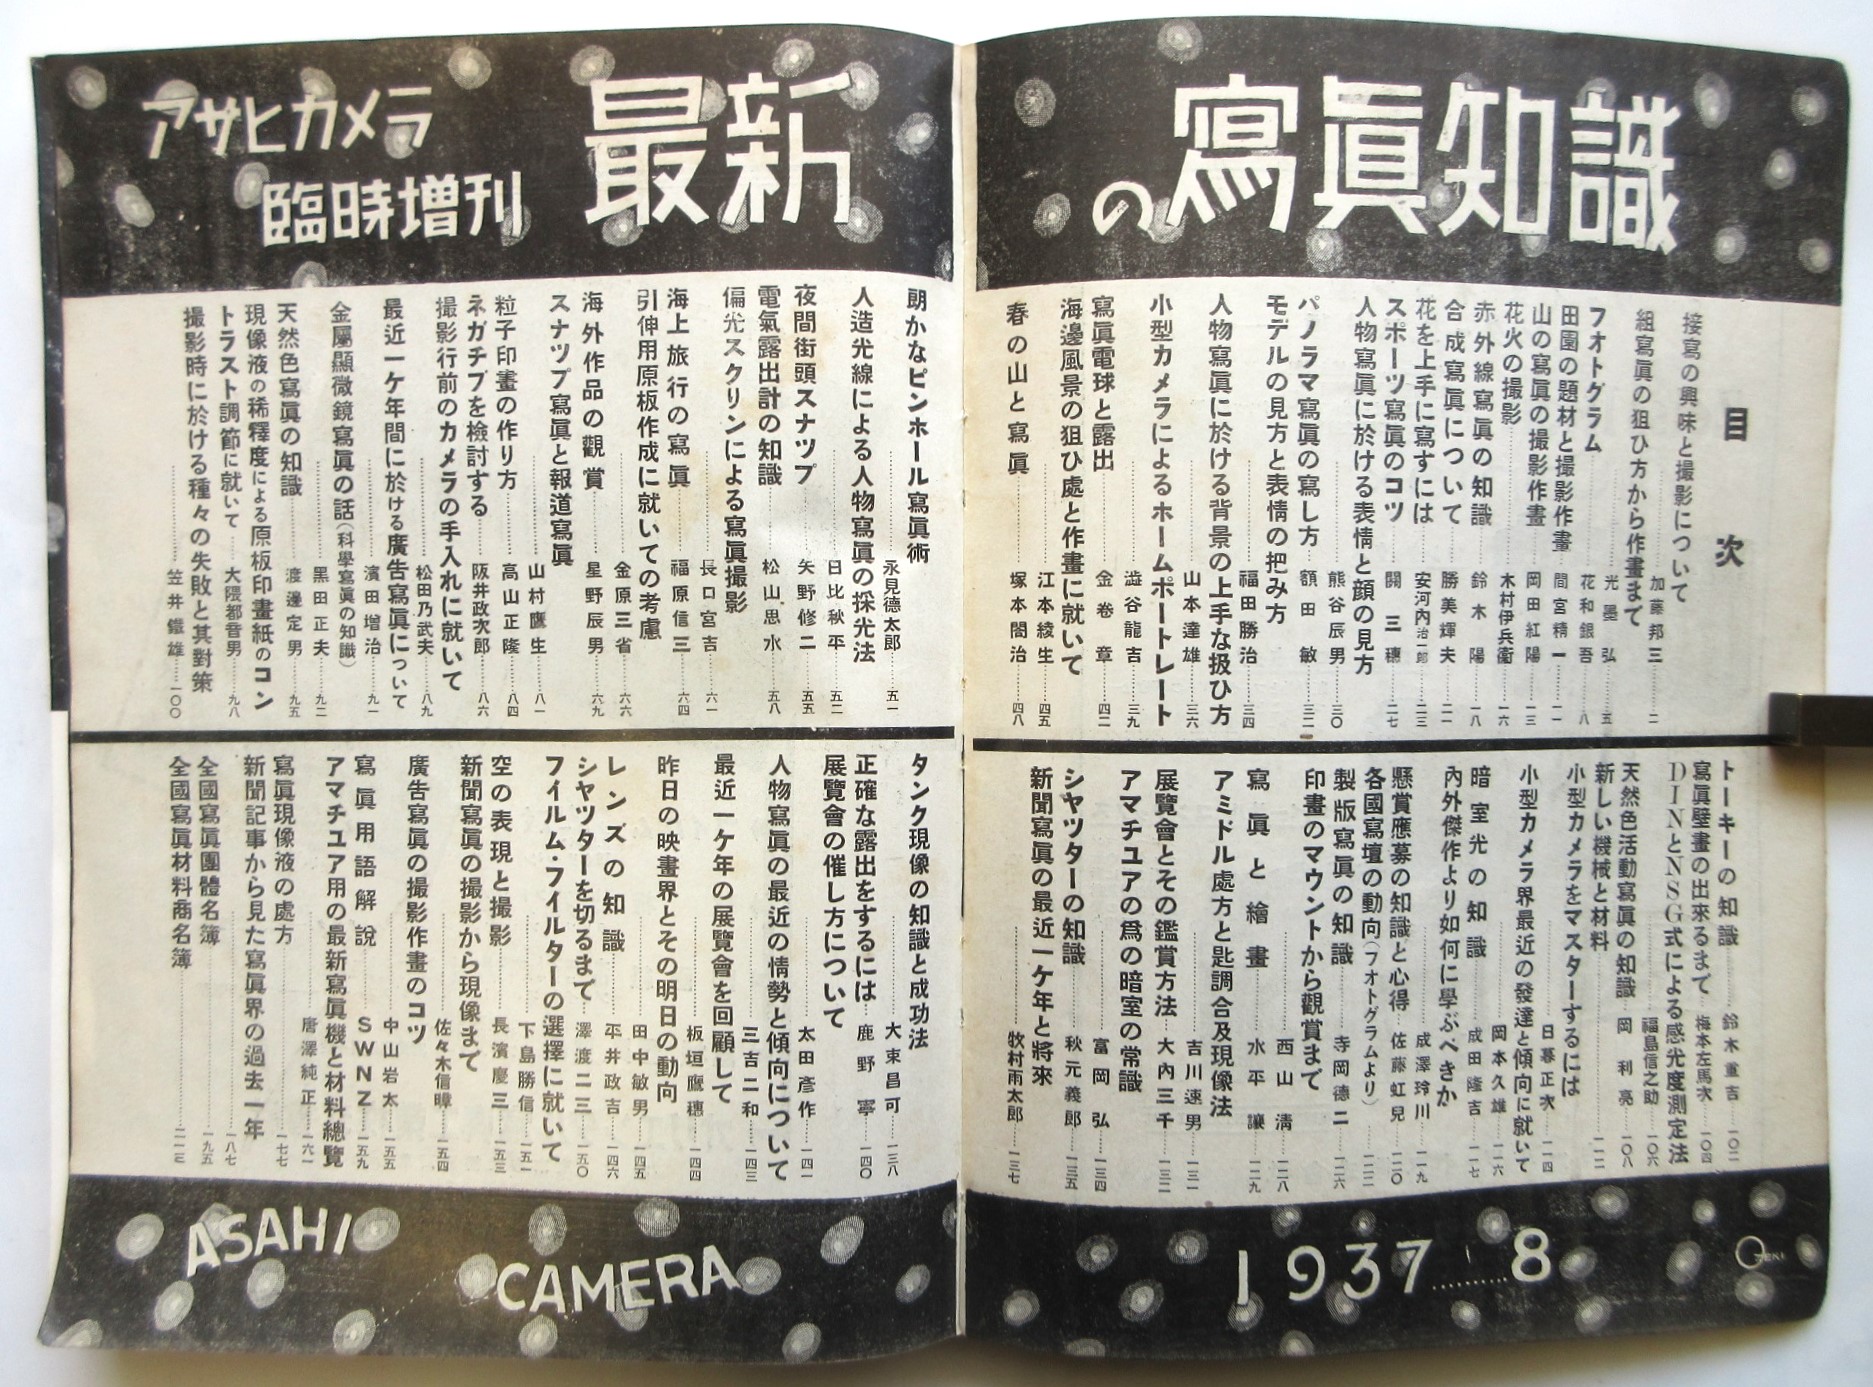 アサヒカメラ
臨時増刊
最新
の寫眞知識
目次
接寫の興味と撮影について
加藤邦三 二
組寫眞の狙ひ方から作畫まで
光墨弘 五
フオトグラム
花和銀吾 八
田園の題材と撮影作畫
間宮精一 一一
山の寫眞の撮影作畫
岡田紅陽 一三
花火の撮影
木村伊兵衞 一六
赤外線寫眞の知識
鈴木陽 一八
合成寫眞について
勝美輝夫 二一
花を上手に寫すには
安河內治一郎 二三
スポーツ寫眞のコツ
關三穗 二七
人物寫眞に於ける表情と顔の見方
熊谷辰男 三〇
パノラマ寫眞の寫し方
額田敏 三二
モデルの見方と表情の把み方
福田勝治 三四
人物寫眞に於ける背景の上手な扱ひ方
山本達雄 三六
小型カメラによるホームポートレート
澁谷龍吉 三九
寫眞電球と露出
金卷章 四二
海邊風景の狙ひ處と作畫に就いて
江本綾生 四五
春の山と寫眞
塚本閤治 四八
朗かなピンホール寫眞術
永見德太郎 五一
人造光線による人物寫眞の採光法
日比秋平 五二
夜間街頭スナツプ
矢野修二 五五
電氣露出計の知識
松山思水 五八
偏光スクリンによる寫眞撮影
長口宮吉 六一
海上旅行の寫眞
福原信三 六四
引伸用原板作成に就いての考慮
金原三省 六六
海外作品の觀賞
星野辰男 六九
スナツプ寫眞と報道寫眞
山村鷹生 八一
粒子印畫の作り方
高山正隆 八四
ネガチブを檢討する
阪井政次郎 八六
撮影行前のカメラの手入れに就いて
松田乃武夫 八九
最近一ケ年間に於ける廣吿寫眞について
濱田增治 九一
金屬顯微鏡寫眞の話(科學寫眞の知識)
黑田正夫 九二
天然色寫眞の知識
渡邊定男 九五
現像液の稀釋度による原板印畫紙のコン
トラスト調節に就いて
大隈都音男 九八
撮影時に於ける種々の失敗と其對策
笠井鐵雄 一〇〇
トーキーの知識
鈴木重吉 一〇二
寫眞壁畫の出來るまで
梅本左馬次 一〇四
DINとNSG式による感光度測定法
福島信之助 一〇六
天然色活動寫眞の知識
岡利亮 一〇八
新しい機械と材料
一一一
小型カメラをマスターするには
日暮正次 一一四
小型カメラ界最近の發達と傾向に就いて
岡本久雄 一一六
暗室光の知識
成田隆吉 一一七
內外傑作より如何に學ぶべきか
成澤玲川 一一九
懸賞應募の知識と心得
佐藤虹兒 一二〇
各國寫壇の動向(フオトグラムより)
一二二
製版寫眞の知識
寺岡德二 一二六
印畫のマウントから觀賞まで
西山淸 一二八
寫眞と繪畫
水平讓 一二九
アミドル處方と匙調合及現像法
吉川速男 一三一
展覽會とその鑑賞方法
大內三千 一三二
アマチユアの爲の暗室の常識
富岡弘 一三四
シヤツターの知識
秋元義郎 一三五
新聞寫眞の最近一ケ年と將來
牧村雨太郎 一三七
タンク現像の知識と成功法
大束昌可 一三八
正確な露出をするには
鹿野寧 一四〇
展覽會の催し方について
太田彥作 一四一
人物寫眞の最近の情勢と傾向について
三吉二和 一四三
最近一ケ年の展覽會を回顧して
板垣鷹穗 一四四
昨日の映畫界とその明日の動向
田中敏男 一四五
レンズの知識
平井政吉 一四六
シヤツターを切るまで
澤渡二三 一五〇
フイルム・フイルターの選擇に就いて
下島勝信 一五一
空の表現と撮影
長濱慶三 一五三
新聞寫眞の撮影から現像まで
佐々木信暲 一五四
廣吿寫眞の撮影作畫のコツ
中山岩太 一五五
寫眞用語解說
SWNZ 一五九
アマチユア用の最新寫眞機と材料總覽
唐澤純正 一六一
寫眞現像液の處方
一七七
新聞記事から見た寫眞界の過去一年
一八七
全國寫眞團體名簿
一九五
全國寫眞材料商名簿
二一三
ASAHI
CAMERA
1937........8
OZEKI